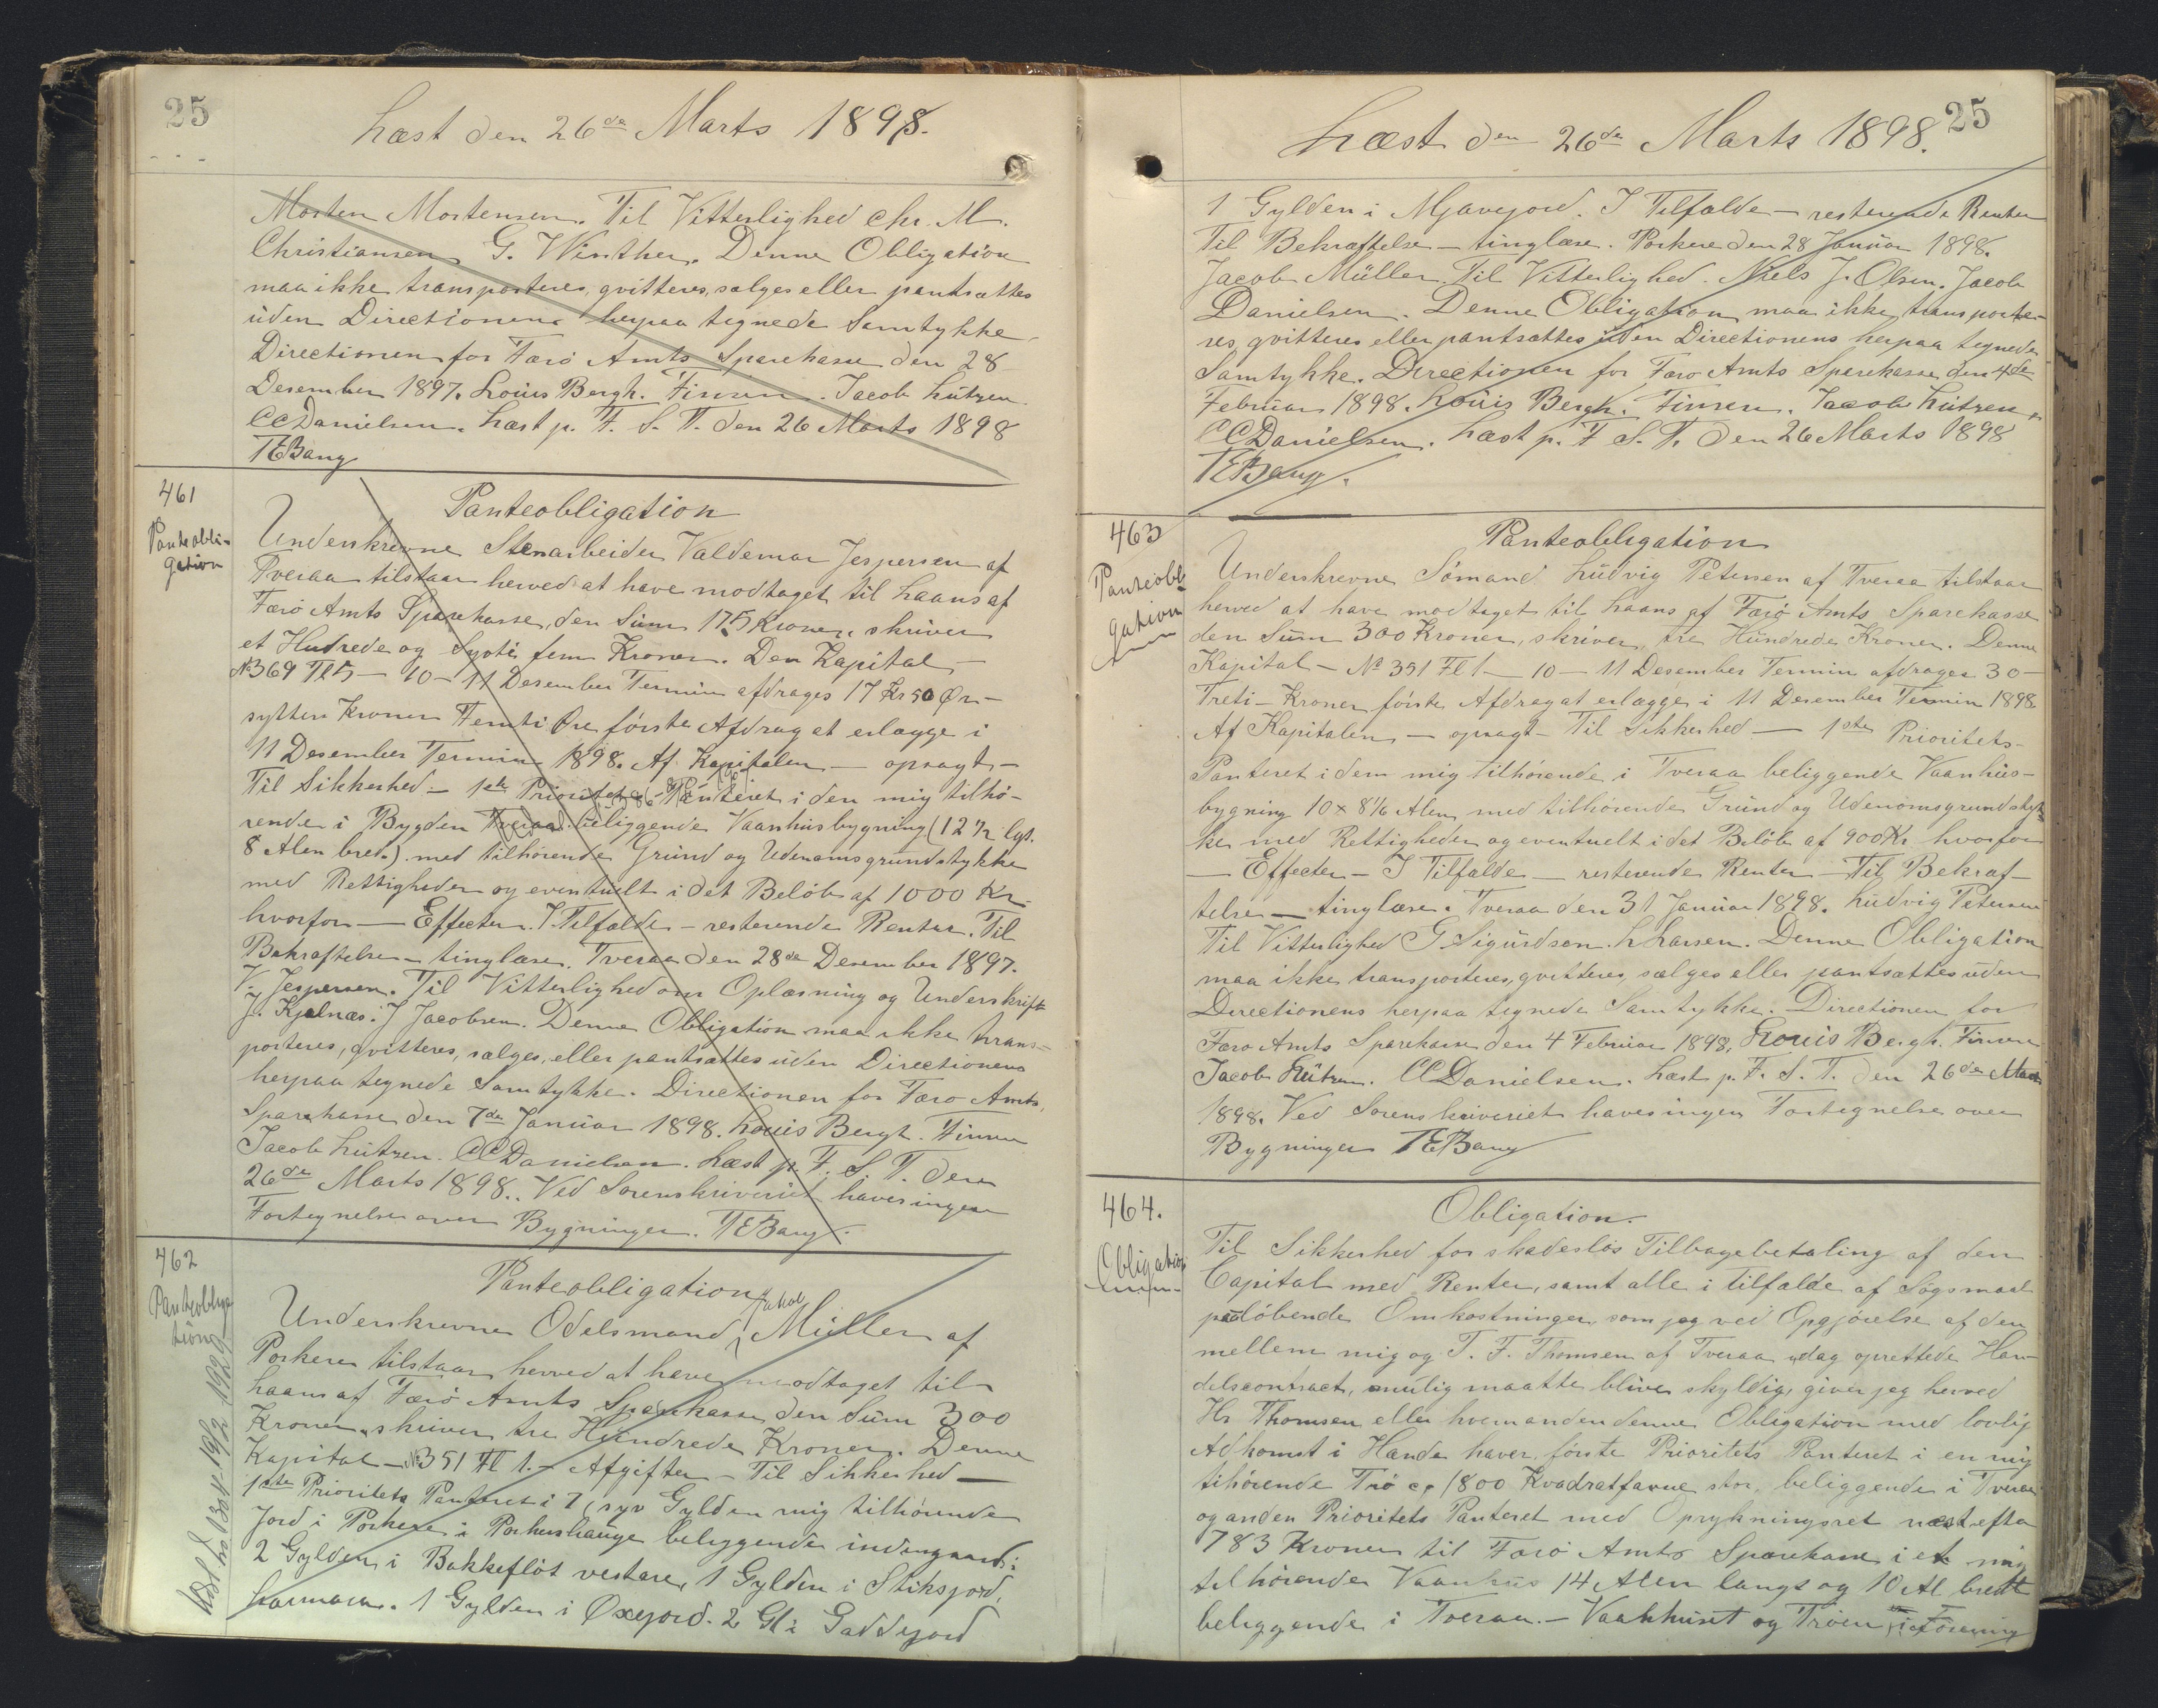 25
Læst den 26de Marts 1898.
Morten Mortensen. Til Vitterlighed Chr. M.
Christiansen G. Winther. Denne Obligation
maa ikke transporteres, qvitteres, sælges eller pantsættes
uden Directionens herpaa tegnede Samtykke.
Directionen for Færö Amts Sparekasse den 28
Desember 1897. Louis Bergh. Finsen. Jacob Lützen
CC Danielsen. Læst p. F. S. T. den 26 Marts 1898
TEBang
461
Panteobli-
gation
Panteobligation
Underskrevne Stenarbeider Valdemar Jespersen af
Tveraa tilstaar herved at have modtaget til Laans af
Færö Amts Sparekasse, den Sum 175 Kroner, skriver
et Hudrede og Systi fem Kroner. Den Kapital -
No 369 Fl 5 - 10 - 11 Desember Termin afdrages 17 Kr 50 Ør -
sytten Kroner Femti Øre förste Afdrag at erlægge i
11 Desember Termin 1898. Af Kapitalen - opsagt -
Til Sikkerhed - 1ste Prioritets - Panteret i den mig tilhö-
rende i Bygden Tveraa beliggende Vaanhusbygning (12 1/2 lgt.
8 Alen bred.) med tilhörende Grund og Udenomsgrundstykke
med Rettigheder og eventuelt i det Belöb af 1000 Kr.
hvorfor - Effecter. I Tilfælde - resterende Renter. Til
Bekræftelse - tinglæse. Tveraa den 28de Desember 1897.
V. Jespersen. Til Vitterlighed om Oplæsning og Underskrift
J. Kjelnæs. J Jacobsen. Denne Obligation maa ikke trans-
porteres, qvitteres, sælges, eller pantsættes uden Directionens
herpaa tegnede Samtykke. Directionen for Færo Amts
Sparekasse den 7de Januar 1898. Louis Bergh. Finsen
Jacob Lützen. CC Danielsen. Læst p. F. S. T. den
26de Marts 1898. Ved Sorenskriveriet haves ingen
Fortegnelse over Bygninger. TEBang.
462
Panteobliga
tion
Panteobligation
Underskrevne Odelsmand Jakob Müller af
Porkere tilstaar herved at have modtaget til
Laans af Færö Amts Sparekasse den Sum 300
Kroner, skriver tre Hundrede Kroner. Denne
Kapital - No 351 Fl 1. - Afgifter - Til Sikkerhed -
1ste Prioritets Panteret i 7 (syv Gylden mig tilhörende
Jord i Porkere i Porkershauge beliggende indengaards:
2 Gylden i Bakkeflöt vestare, 1 Gylden i Stiksjord,
1 Gylden i Øxejord. 2 Gl i Gaddejord
25
Læst den 26de Marts 1898.
1 Gylden i Mjavejord. I Tilfælde - resterende Renter
Til Bekræftelse - tinglæse. Porkere den 28 Januar 1898.
Jacob Müller. Til Vitterlighed. Niels J. Olsen. Jacob
Danielsen. Denne Obligation maa ikke transporte-
res, qvitteres eller pantsættes uden Directionens herpaa tegnede
Samtykke. Directionen for Færo Amts Sparekasse den 4de
Februar 1898. Louis Bergh. Finsen. Jacob Lützen.
CC Danielsen. Læst p. F. S. T. den 26 Marts 1898
TEBang.
463
Panteobli-
gation
Panteobligation
Underskrevne Sömand Ludvig Petersen af Tveraa tilstaar
herved at have modtaget til Laans af Færö Amts Sparekasse
den Sum 300 Kroner, skriver, tre Hundrede Kroner. Denne
Kapital - No 351 Fl 1 - 10 - 11 Desember Termin afdrages 30 -
Treti - Kroner förste Afdrag at erlægge i 11 Desember Termin 1898
Af Kapitalen - opsagt - Til Sikkerhed - 1ste Prioritets-
Panteret i dem mig tilhörende i Tveraa beliggende Vaanhus-
bygning 10 x 8 1/6 Alen med tilhörende Grund og Udenomsgrundstyk
ke med Rettigheder og eventuelt i det Belöb af 900 Kr hvorfor
- Effecter - I Tilfælde - resterende Renter - Til Bekræf-
telse - tinglæse. Tveraa den 31 Januar 1898. Ludvig Petersen
Til Vitterlighed G Sigurdson. L Larsen. Denne Obligation
maa ikke transporteres, qvitteres, sælges eller pantsættes uden
Directionens herpaa tegnede Samtykke. Directionen for
Færo Amts Sparekasse den 4 Februar 1898. Louis Bergh. Finsen
Jacob Lützen. CC Danielsen. Læst p. F. S. T. den 26de Marts
1898. Ved Sorenskriveriet haves ingen Fortegnelse over
Bygninger TEBang
464.
Obligation
Obligation.
Til Sikkerhed for skadeslös Tilbagebetaling af den
Capital med Renter, samt alle i tilfælde af Sögsmaal
paalöbende Omkostninger, som jeg ved Opgjörelse af den
mellem mig og T. F. Thomsen af Tveraa idag oprettede Han-
delscontract, mulig maatte blive skyldig, giver jeg herved
Hr Thomsen eller hvemanden denne Obligation med lovlig
Adkomst i Hænde haver förste Prioritets Panteret i en mig
tihörende Trö ca 1800 Kvadratfavne stor, beliggende i Tveraa
og anden Prioritets Panteret med Oprykningsret næst efter
783 Kroner til Færö Amts Sparekasse i et mig
tilhörende Vaanhus 14 Alen langt og 10 Al bredt
beliggende i Tveraa. - Vaanhuset og Tröen i Forening